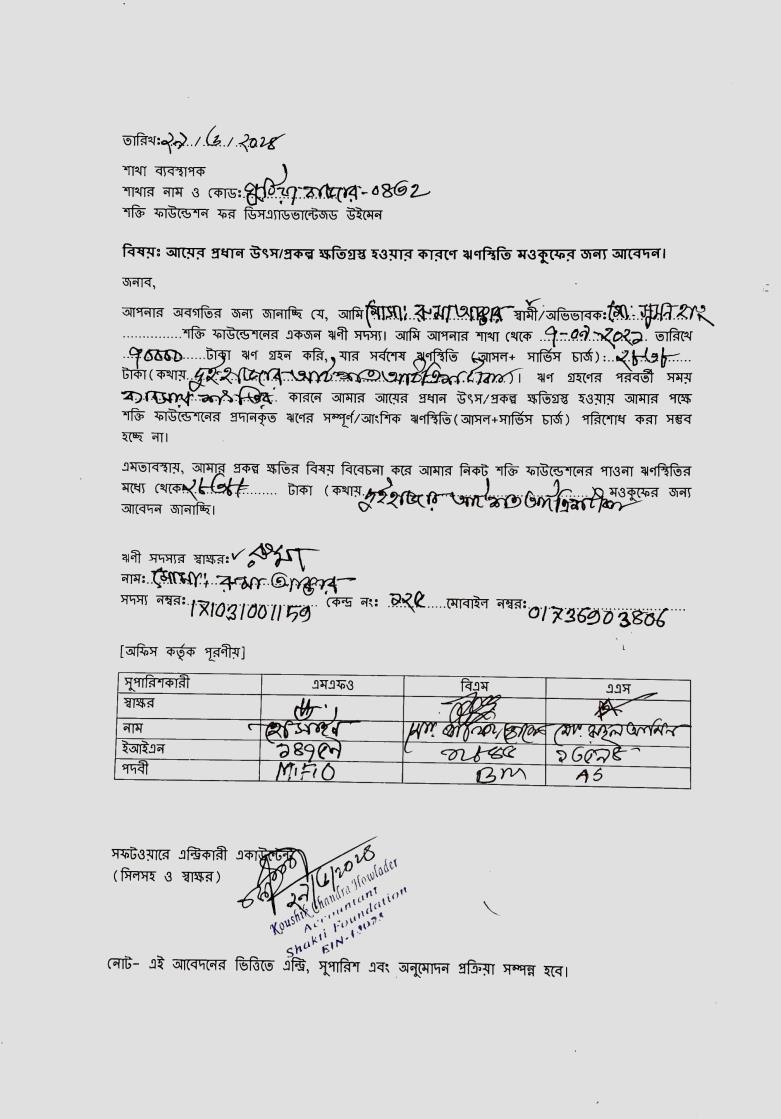 তারিখ: ২৯/৬/২০২৪
শাখা ব্যবস্থাপক
শাখার নাম ও কোড:
শক্তি ফাউন্ডেশন ফর ডিসএ্যাডভান্টেজড উইমেন
বিষয়ঃ আয়ের প্রধান উৎস/প্রকল্প ক্ষতিগ্রস্থ হওয়ার কারণে ঋণস্থিতি মওকুফের জন্য আবেদন।
জনাব,
আপনার অবগতির জন্য জানাচ্ছি যে, আমি মোসাঃ রুমা আক্তার স্বামী/অভিভাবক: মো:
................শক্তি ফাউন্ডেশনের একজন ঋনী সদস্য। আমি আপনার শাখা থেকে তারিখে
৭০০০০ টাকা ঋণ গ্রহন করি, যার সর্বশেষ ঋণস্থিতি (আসল+ সার্ভিস চার্জ):
টাকা(কথায় দুইহাজার আটশত আটত্রিশ টাকা)। ঋণ গ্রহণের পরবর্তী সময়
কারনে আমার আয়ের প্রধান উৎস/প্রকল্প ক্ষতিগ্রস্থ হওয়ায় আমার পক্ষে
শক্তি ফাউন্ডেশনের প্রদানকৃত ঋণের সম্পূর্ণ/আংশিক ঋণস্থিতি(আসল+সার্ভিস চার্জ) পরিশোধ করা সম্ভব
হচ্ছে না।
এমতাবস্থায়, আমার প্রকল্প ক্ষতির বিষয় বিবেচনা করে আমার নিকট শক্তি ফাউন্ডেশনের পাওনা ঋণস্থিতির
মধ্যে থেকে টাকা (কথায় দুইহাজার আটশত আটত্রিশ মওকুফের জন্য
আবেদন জানাচ্ছি।
ঋণী সদস্যর স্বাক্ষর: রুমা
নাম: মোসাঃ রুমা আক্তার
সদস্য নম্বর: 171031001159 কেন্দ্র নং: মোবাইল নম্বর: 01736903806
[অফিস কর্তৃক পূরণীয়]
সুপারিশকারী এমএফও বিএম এএস
স্বাক্ষর
নাম
ইআইএন
পদবী MFO BM AS
সফটওয়ারে এন্ট্রিকারী একাউন্টেন্ট
(সিলসহ ও স্বাক্ষর)
২৯/৬/২০২৪
Koushik Chandra Howlader
Accountant
Shakti Foundation
নোট- এই আবেদনের ভিত্তিতে এন্ট্রি, সুপারিশ এবং অনুমোদন প্রক্রিয়া সম্পন্ন হবে।